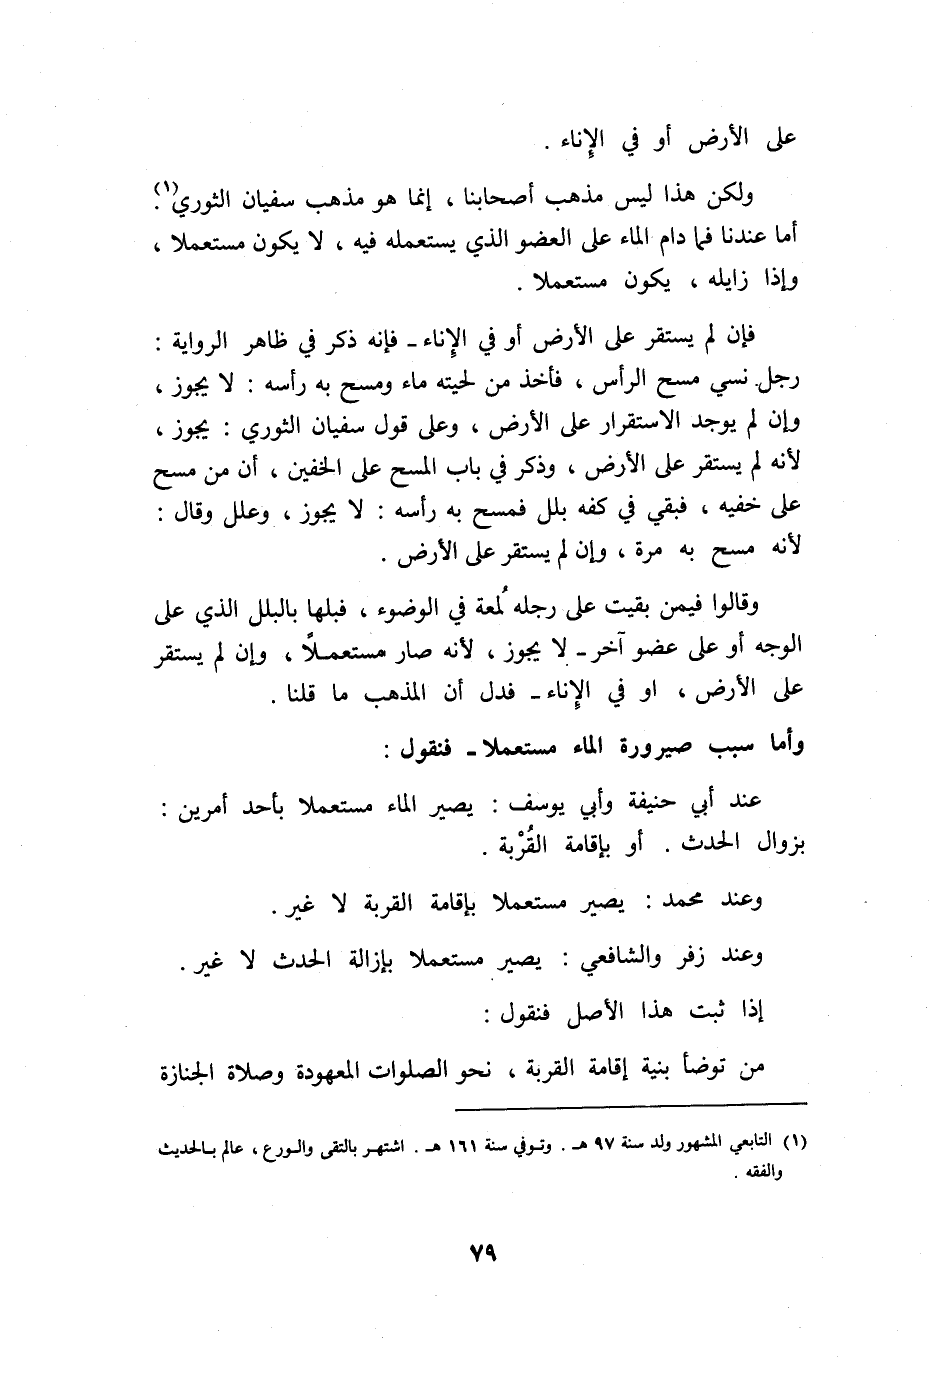 على الأرض أو في الإناء .
ولكن هذا ليس مذهب أصحابنا ، إنما هو مذهب سفيان الثوري(١).
أما عندنا فما دام الماء على العضو الذي يستعمله فيه ، لا يكون مستعملا ،
وإذا زايله ، يكون مستعملا .
فإن لم يستقر على الأرض أو في الإناء - فإنه ذكر في ظاهر الرواية :
رجل نسي مسح الرأس ، فأخذ من لحيته ماء ومسح به رأسه : لا يجوز ،
وإن لم يوجد الاستقرار على الأرض ، وعلى قول سفيان الثوري : يجوز ،
لأنه لم يستقر على الأرض ، وذكر في باب المسح على الخفين ، أن من مسح
على خفيه ، فبقي في كفه بلل فمسح به رأسه : لا يجوز ، وعلل وقال :
لأنه مسح به مرة ، وإن لم يستقر على الأرض .
وقالوا فيمن بقيت على رجله لُمعة في الوضوء ، فبلها بالبلل الذي على
الوجه أو على عضو آخر - لا يجوز ، لأنه صار مستعملاً ، وإن لم يستقر
على الأرض ، او في الإناء - فدل أن المذهب ما قلنا .
وأما سبب صيرورة الماء مستعملا - فنقول :
عند أبي حنيفة وأبي يوسف : يصير الماء مستعملا بأحد أمرين :
بزوال الحدث . أو بإقامة القُرْبة .
وعند محمد : يصير مستعملا بإقامة القربة لا غير .
وعند زفر والشافعي : يصير مستعملا بإزالة الحدث لا غير .
إذا ثبت هذا الأصل فنقول :
من توضأ بنية إقامة القربة ، نحو الصلوات المعهودة وصلاة الجنازة
(١) التابعي المشهور ولد سنة ٩٧ هـ . وتوفي سنة ١٦١ هـ . اشتهر بالتقى والورع ، عالم بالحديث
والفقه .
٧٩